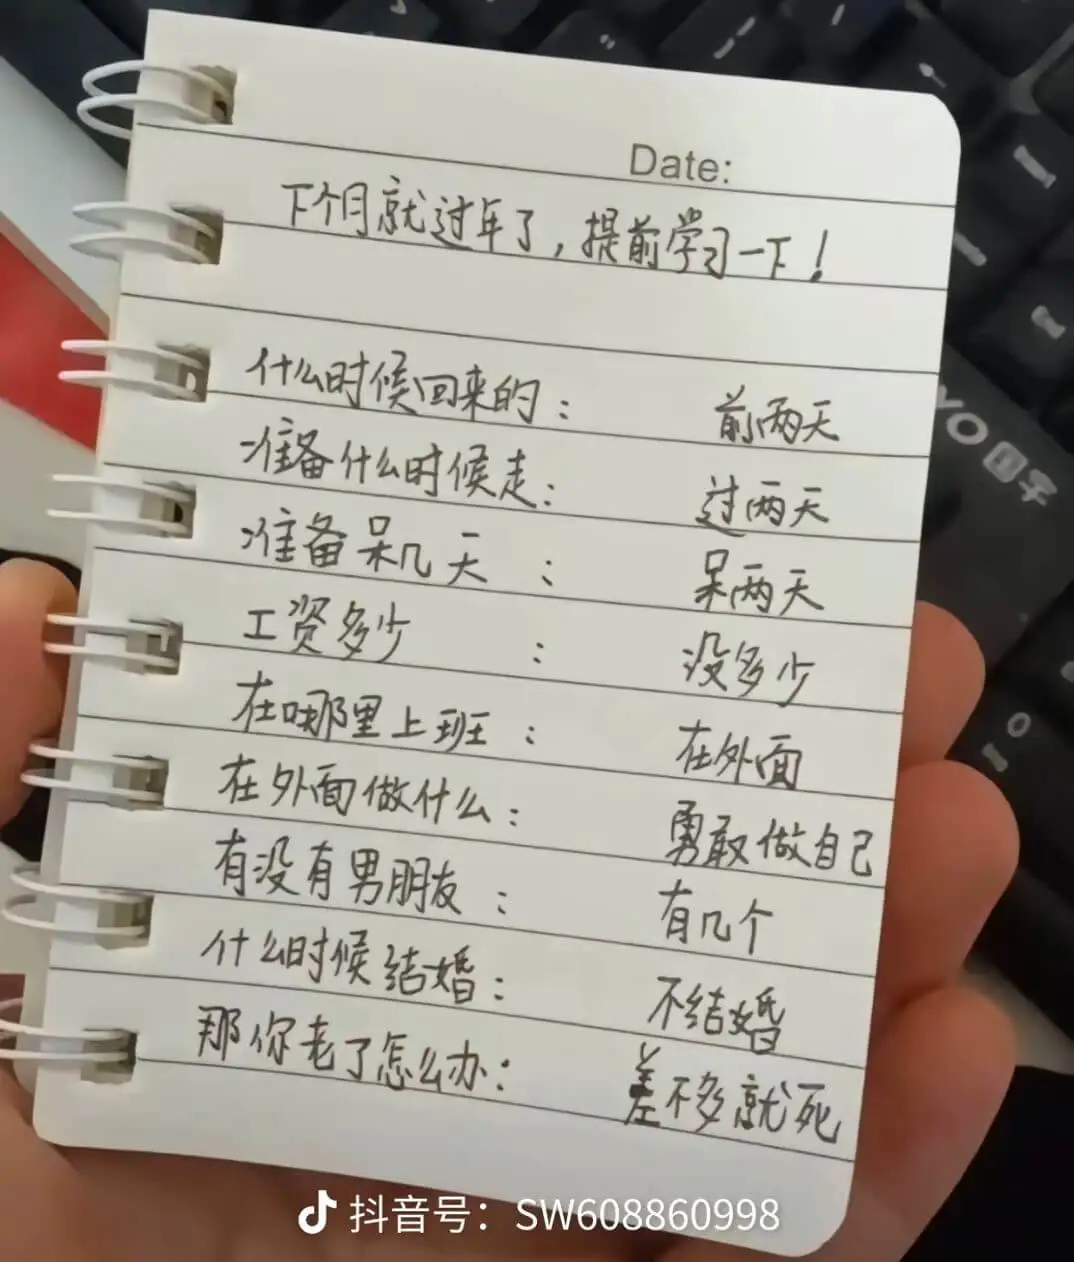 Date:
下个月就过年了,提前学习一下!
什么时候回来的: 前两天
准备什么时候走: 过两天
准备呆几天: 呆两天
工资多少: 没多少
在哪里上班: 在外面
在外面做什么: 勇敢做自己
有没有男朋友: 有几个
什么时候结婚: 不结婚
那你老了怎么办: 差不多就死
抖音号: SW608860998